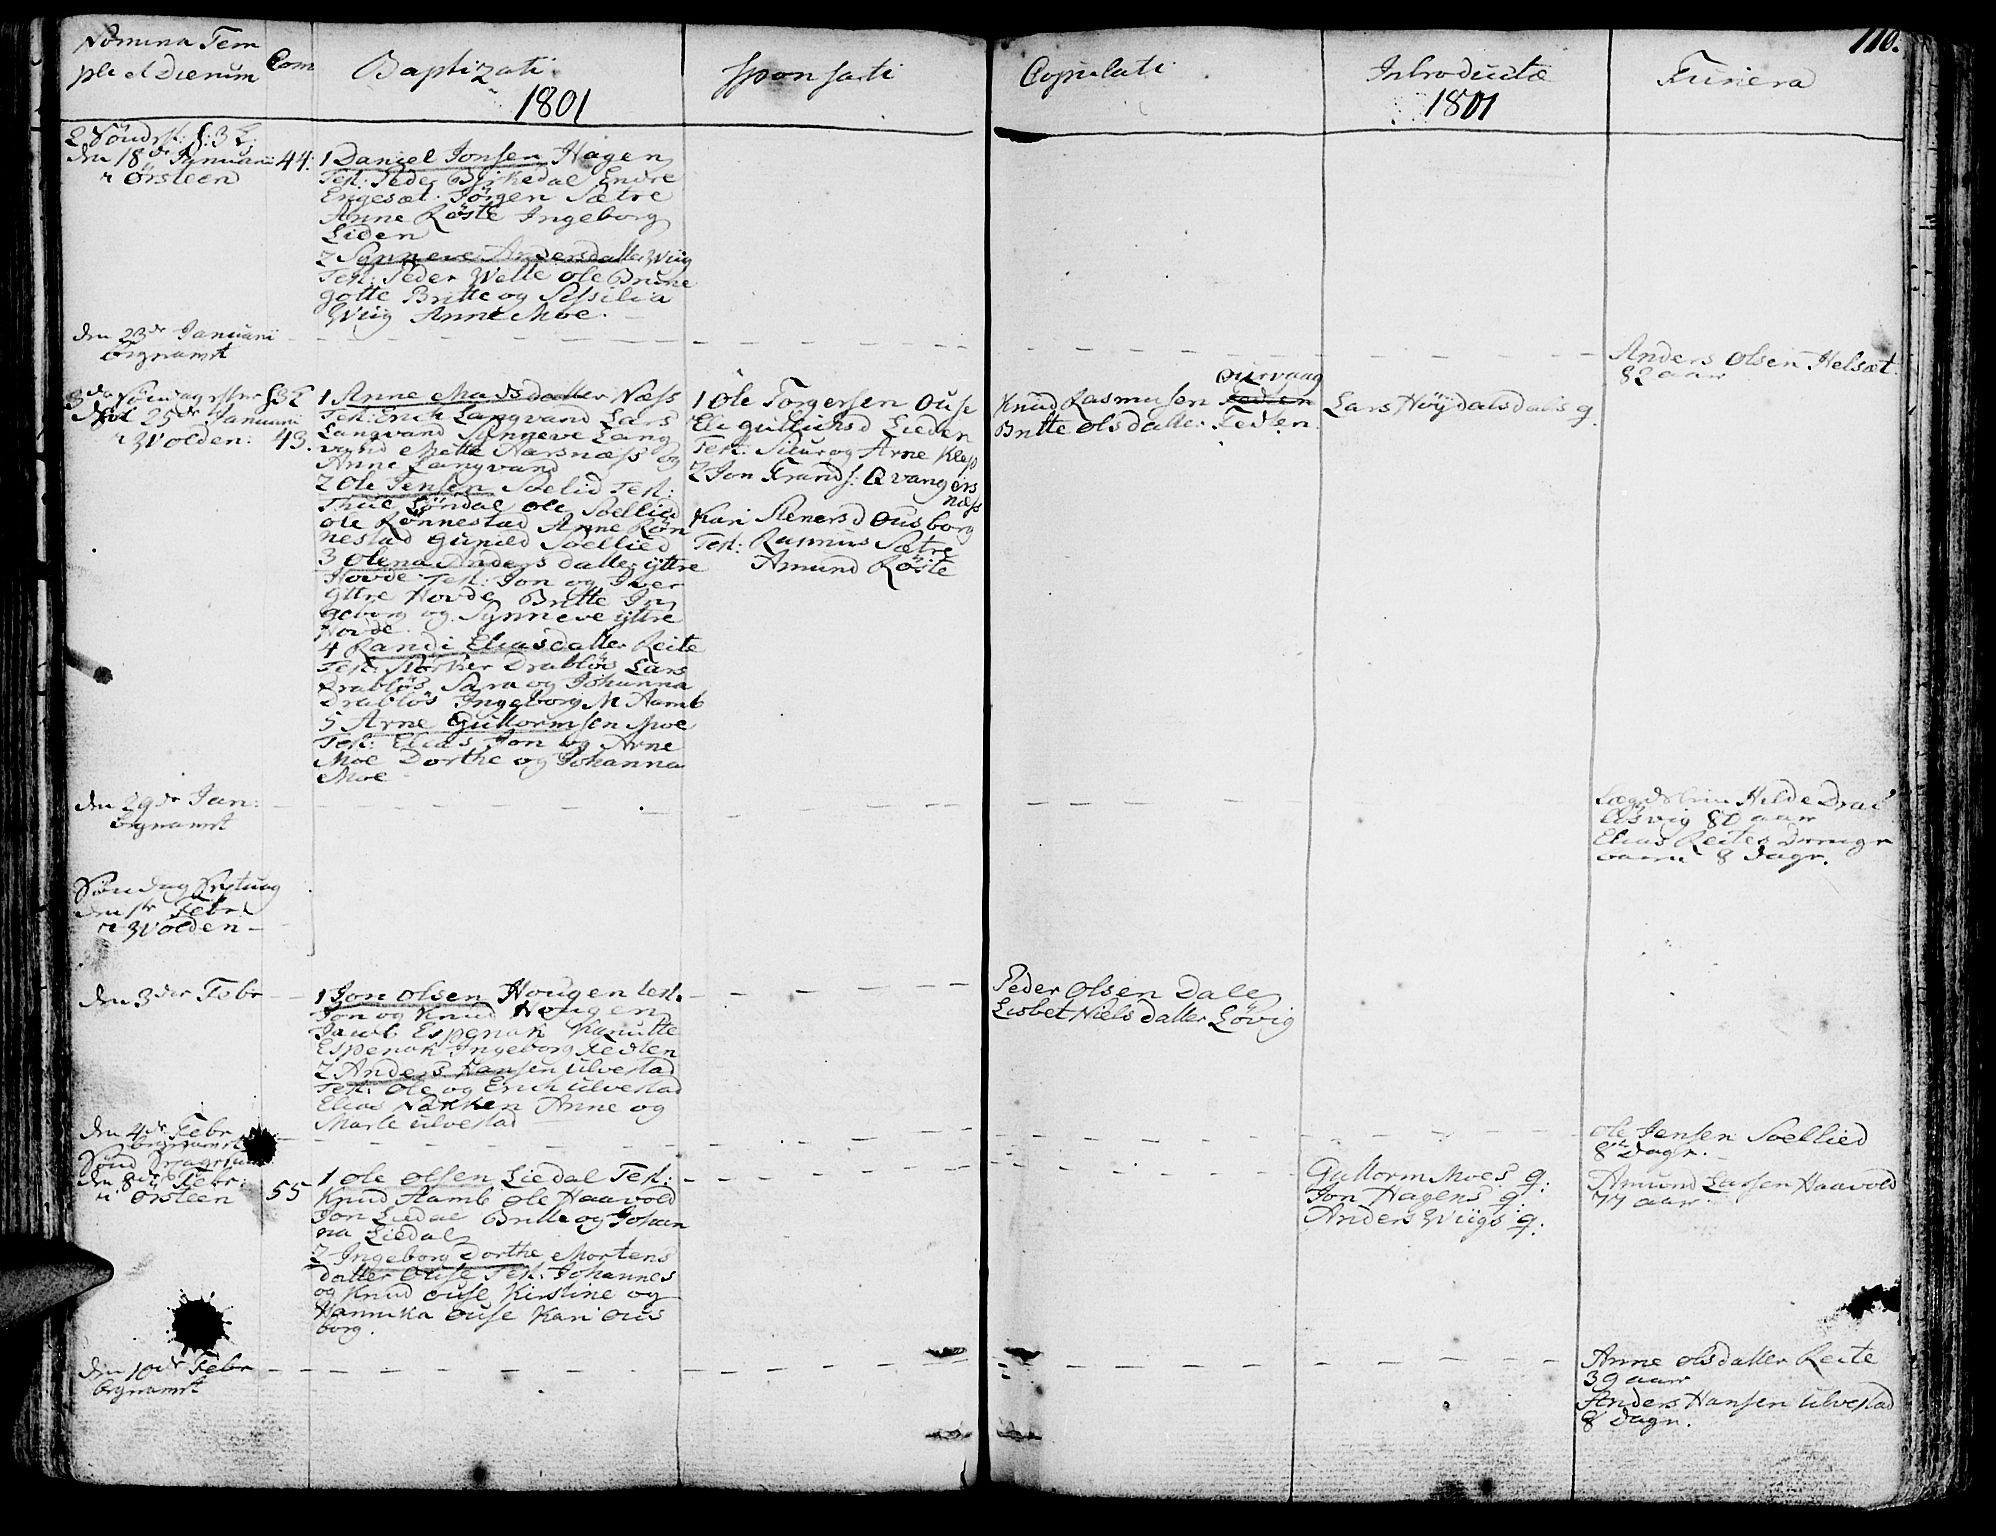 110.
Nomina Tem
pli et Dierum
Com
Baptizati
1801
Sponsati
Copulati
Introductæ
1801
Funera
2 Søndr: f: 3 K:
den 18de Januarii
i Ørsteen
44.
1 Daniel Jonsen Hagen
Test: Peder Birkedal Endre
Engesæt Jørgen Sætre
Anne Røste Ingeborg
Liden
2 Synneve Andersdatter Wiig
Test: Peder Welle Ole Brune
gotte Britte og Sessilia
Wiig Anne Moe
den 23de Januarii
begravet
Anders Olsen Helsæt
82 aar
3de Søndag efter H3K
den 25de Januarii
i Wolden:
43.
1 Anne Madsdatter Næss
Test: Erich Langvand Lars
Langvand Synneve Lang
vand Mette Aarsnæss og
Anne Langvand
2 Ole Jensen Soelid Test:
Thue Søndal Ole Soellied
Ole Rønnestad Anne Røn
nestad Gunild Soellied
3 Olena Anders datter yttre
Hovde Test: Jon og Iver
yttre Hovde Britte In
geborg og Synneve yttre
Hovde
4 Randi Eliasdatter Reite
Test: Størker Drabløs Lars
Drabløs Sara og Johanna
Drabløs Ingeborg M Aamb
5 Arne Guttormsen Moe
Test: Elias Jon og Arne
Moe Dorthe og Johanna
Moe
1 Ole Torgersen Ouse
Eli Gullichsd Lieden
Test: Siur og Arne Klep
2 Jon Frands: Qvangers
næss
Kari Stenersd Ousborg
Test: Rasmus Sætre
Amund Røste
Ourvaag
Knud Rasmusen Fedten
Britte Olsdatter Fedten
Lars Høydalsdals q.
den 29de Jan:
begravet
Hilde Dral
80 aar
Elias Reites Drenge
barn 8 dage.
Søndag
den 1te Febr.
i Wolden
den 3die Febr
1 Jon Olsen Hougen test.
Jon og Knud Hougen
Jacob Espenak Kanutte
Espenak Ingeborg Fedten
2 Anders Hansen Ulvestad
Test: Ole og Erich Ulvestad
Elias Nakken Anne og
Marte Ulvestad
Peder Olsen Dale
Lisbet Niels datter Løvig
den 4de Febr
begravet
Ole Jensen Soellied
8te dage.
den 8de Febr:
i Ørsteen
55
1 Ole Olsen Liedal Test:
Knud Aamb Ole Haavold
Jon Liedal Britte og Johan
na Liedal
2 Ingeborg Dorthe Mortens
datter Ouse Test: Johannes
og Knud Ouse Kirstine og
Hannika Ouse Kari Ous
borg.
Guttorm Moes q:
Jon Hagens q:
Anders Wiigs q:
Amund Larsen Haavold
77 aar
den 10de Febr
begravet
Anne Olsdatter Reite
39 aar
Anders Hansen Ulvestad
8 dage.